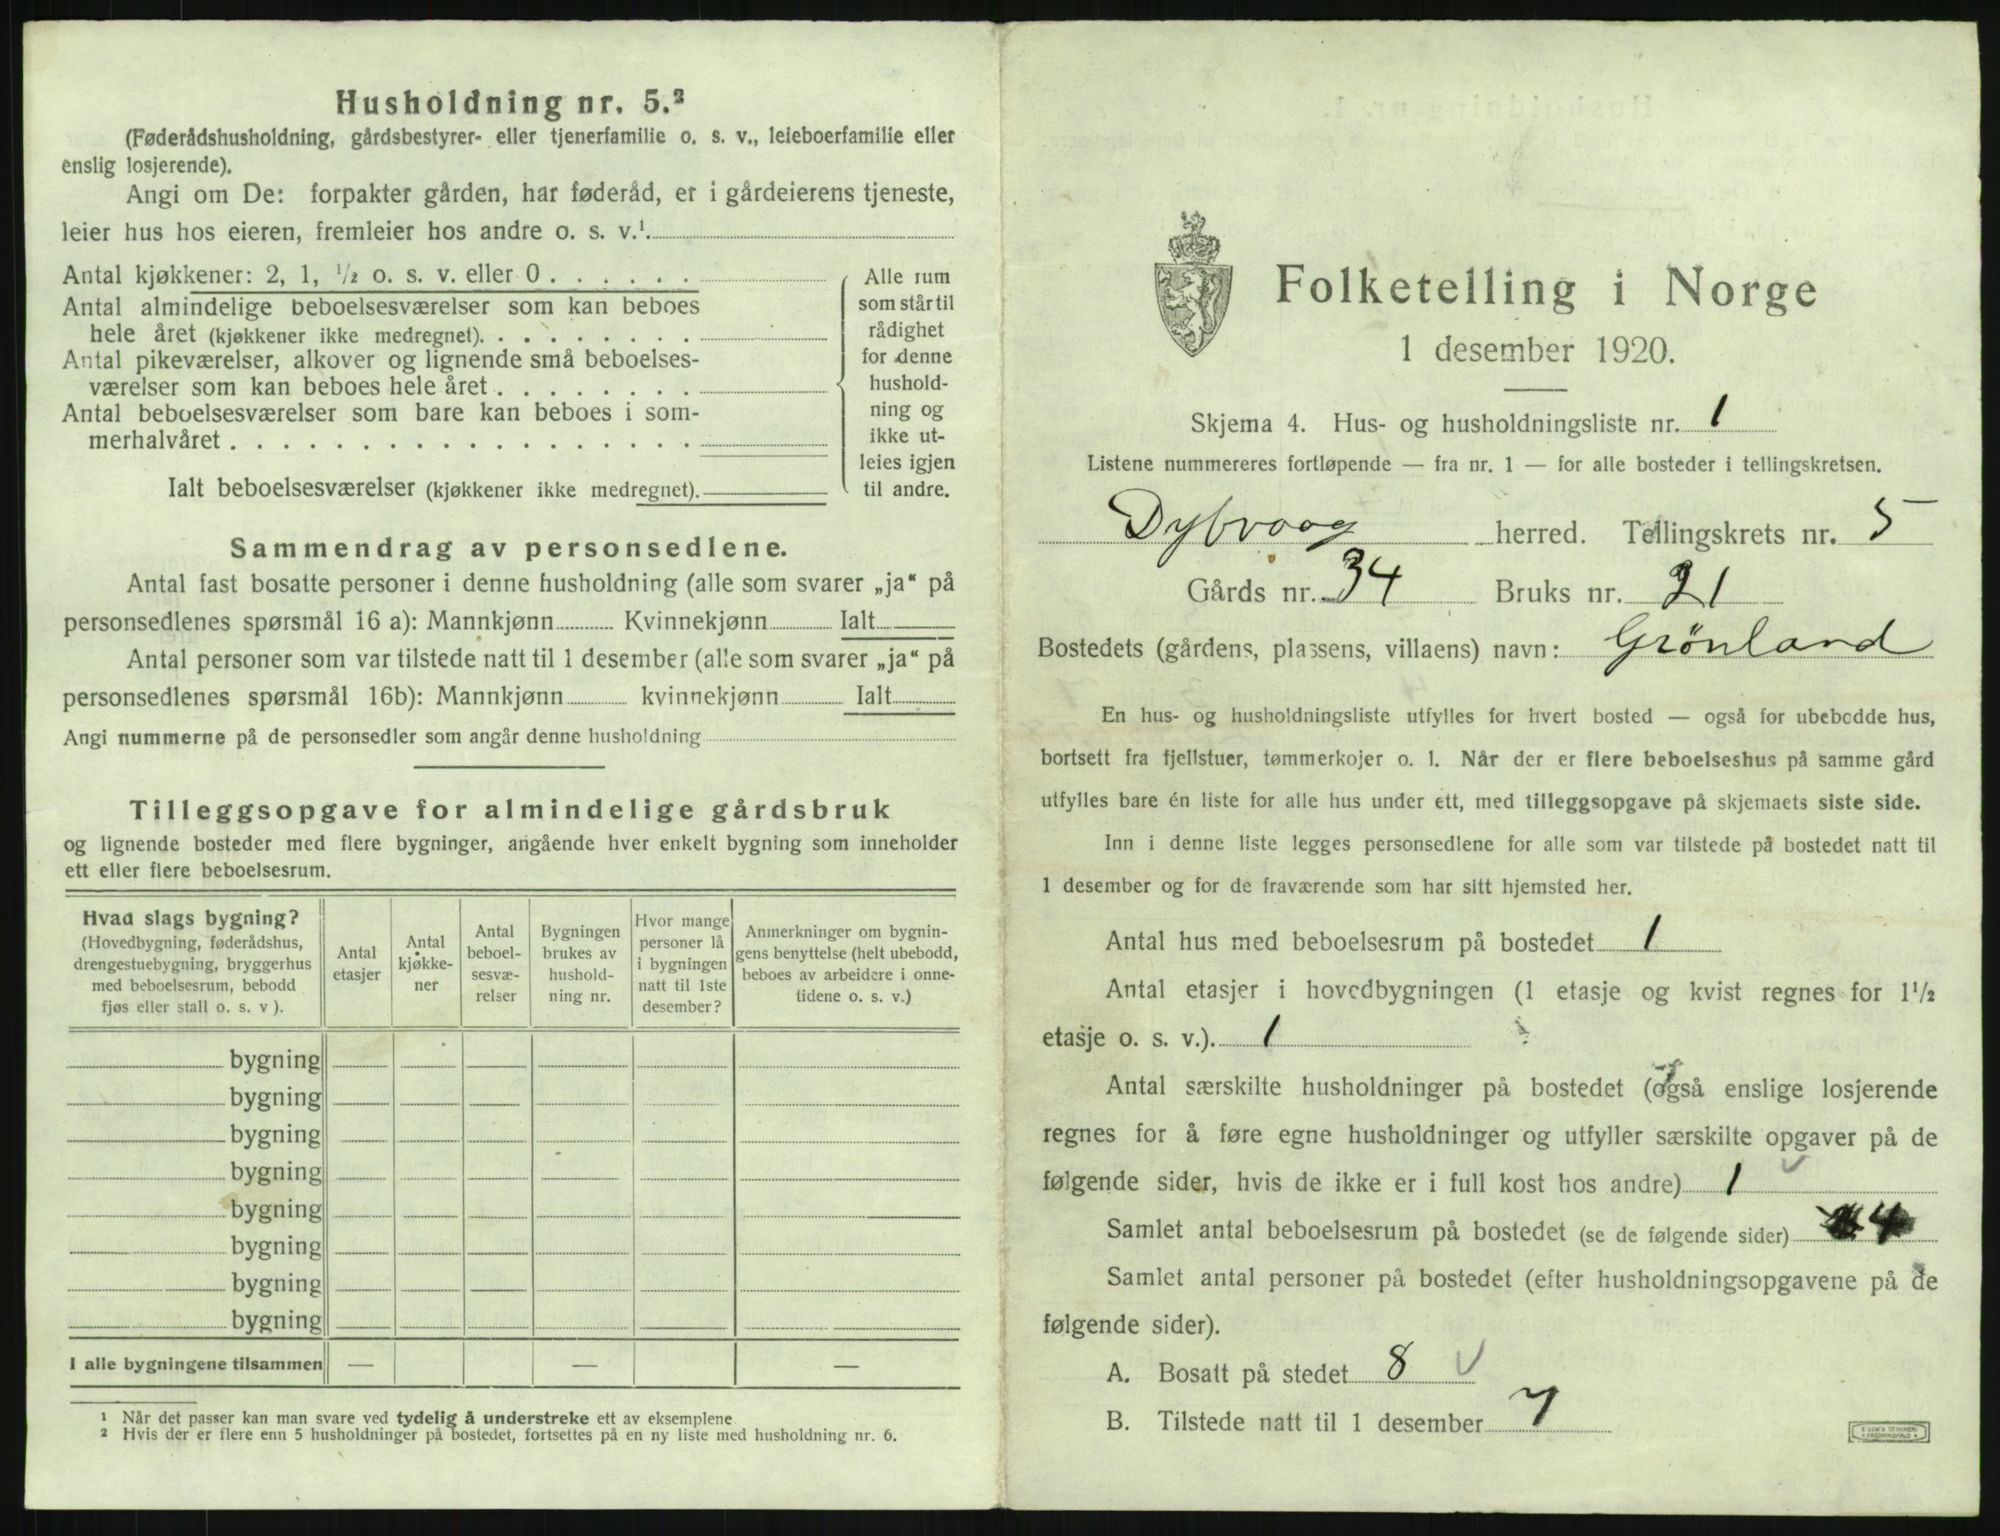 Husholdning nr. 5.²
(Føderådshusholdning, gårdsbestyrer- eller tjenerfamilie o. s. v., leieboerfamilie eller
enslig losjerende).
Angi om De: forpakter gården, har føderåd, er i gårdeierens tjeneste,
leier hus hos eieren, fremleier hos andre o. s. v.¹.
Antal kjøkkener: 2, 1, ½ o. s. v. eller 0 . . . . . .
Antal almindelige beboelsesværelser som kan beboes
hele året (kjøkkener ikke medregnet). . . . . . . . .
Antal pikeværelser, alkover og lignende små beboelses-
værelser som kan beboes hele året . . . . . . . .
Antal beboelsesværelser som bare kan beboes i som-
merhalvåret . . . . . . . . . . . . . . . . . .
Ialt beboelsesværelser (kjøkkener ikke medregnet).
Alle rum
som står til
rådighet
for denne
hushold-
ning og
ikke ut-
leies igjen
til andre.
Sammendrag av personsedlene.
Antal fast bosatte personer i denne husholdning (alle som svarer „ja“ på
personsedlenes spørsmål 16 a): Mannkjønn Kvinnekjønn Ialt
Antal personer som var tilstede natt til 1 desember (alle som svarer „ja“ på
personsedlenes spørsmål 16b): Mannkjønn kvinnekjønn Ialt
Angi nummerne på de personsedler som angår denne husholdning
Tilleggsopgave for almindelige gårdsbruk
og lignende bosteder med flere bygninger, angående hver enkelt bygning som inneholder
ett eller flere beboelsesrum.
Hvad slags bygning?
(Hovedbygning, føderådshus,
drengestuebygning, bryggerhus
med beboelsesrum, bebodd
fjøs eller stall o. s. v ).
Antal
etasjer
Antal
kjøkke-
ner
Antal
beboel-
sesvæ-
relser
Bygningen
brukes av
hushold-
ning nr.
Hvor mange
personer lå
i bygningen
natt til 1ste
desember?
Anmerkninger om bygnin-
gens benyttelse (helt ubebodd,
beboes av arbeidere i onne-
tidene o. s. v.)
bygning
bygning
bygning
bygning
bygning
bygning
bygning
bygning
I alle bygningene tilsammen — — —
¹ Når det passer kan man svare ved tydelig å understreke ett av eksemplene
² Hvis der er flere enn 5 husholdninger på bostedet, fortsettes på en ny liste med husholdning nr. 6.
Folketelling i Norge
1 desember 1920.
Skjema 4. Hus- og husholdningsliste nr. 1
Listene nummereres fortløpende — fra nr. 1 — for alle bosteder i tellingskretsen.
Dybvaag herred. Tellingskrets nr. 5
Gårds nr. 34 Bruks nr. 21
Bostedets (gårdens, plassens, villaens) navn: Grönland
En hus- og husholdningsliste utfylles for hvert bosted — også for ubebodde hus,
bortsett fra fjellstuer, tømmerkojer o. l. Når der er flere beboelseshus på samme gård
utfylles bare én liste for alle hus under ett, med tilleggsopgave på skjemaets siste side.
Inn i denne liste legges personsedlene for alle som var tilstede på bostedet natt til
1 desember og for de fraværende som har sitt hjemsted her.
Antal hus med beboelsesrum på bostedet 1
Antal etasjer i hovedbygningen (1 etasje og kvist regnes for 1½
etasje o. s. v.). 1
Antal særskilte husholdninger på bostedet (også enslige losjerende
regnes for å føre egne husholdninger og utfyller særskilte opgaver på de
følgende sider, hvis de ikke er i full kost hos andre) 1
Samlet antal beboelsesrum på bostedet (se de følgende sider) 4
Samlet antal personer på bostedet (efter husholdningsopgavene på de
følgende sider).
A. Bosatt på stedet 8
B. Tilstede natt til 1 desember 7